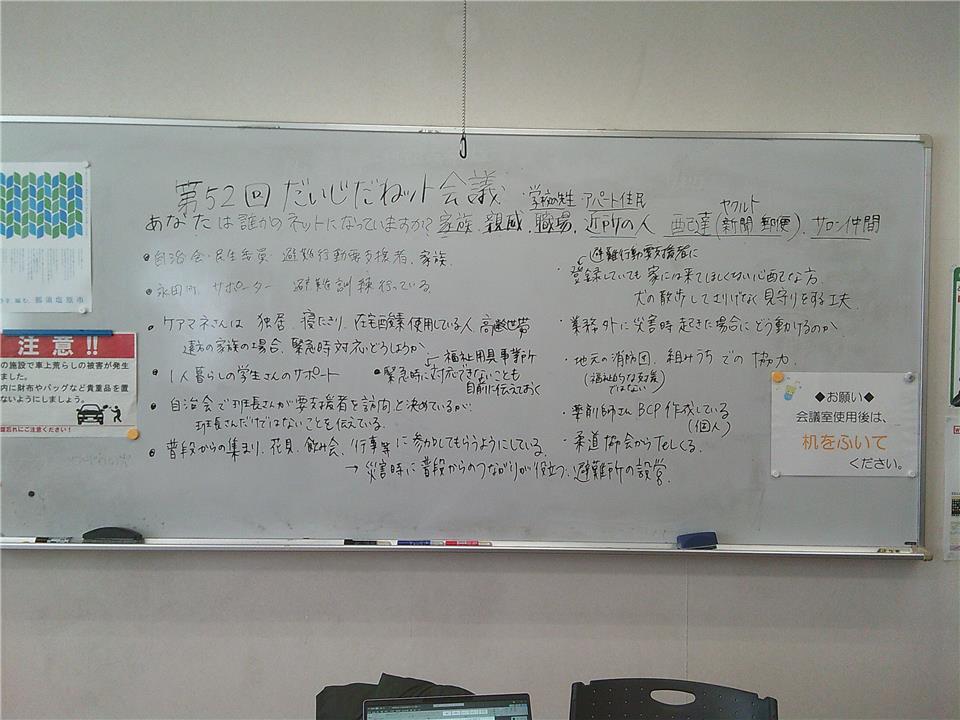 第52回 だいじだねット会議
・学校の先生・アパート住民
ヤクルト
あなたは誰かのネットになっていますか? 家族、親戚、職場、近所の人 配達(新聞 郵便)、サロン仲間
・自治会・民生委員 避難行動要支援者、家族、
・永田町 サポーター 避難訓練行っている。
・ケアマネさんは 独居、寝たきり、在宅酸素使用している人 高齢世帯
遠方の家族の場合、緊急時対応どうしようか
・1人暮らしの学生さんのサポート
福祉用具事業所
・緊急時に対応できないことも
事前に伝えておく
・自治会で班長さんが要支援者を訪問と決めているが、
班長さんだけではないことを伝えている。
・普段からの集まり、花見、飲み会、行事等に参加してもらうようにしている。
→災害時に普段からのつながりが役立つ、避難所の設営。
避難行動要支援者に
・登録していても家には来てほしくない心配な方。
犬の散歩してさりげなく見守りをする工夫。
・業務外に災害時起きた場合にどう動けるのか
・地元の消防団、組みうちでの協力。
(福祉的な支援
ではない)
・薬剤師さんBCP作成している
(個人)
・柔道協会からTelくる。
那須塩原市
注意!!
の施設で車上荒らしの被害が発生
ました。
内に財布やバッグなど貴重品を置
ないようにしましょう。
錠忘れにご注意ください!
◆お願い◆
会議室使用後は、
机をふいて
ください。